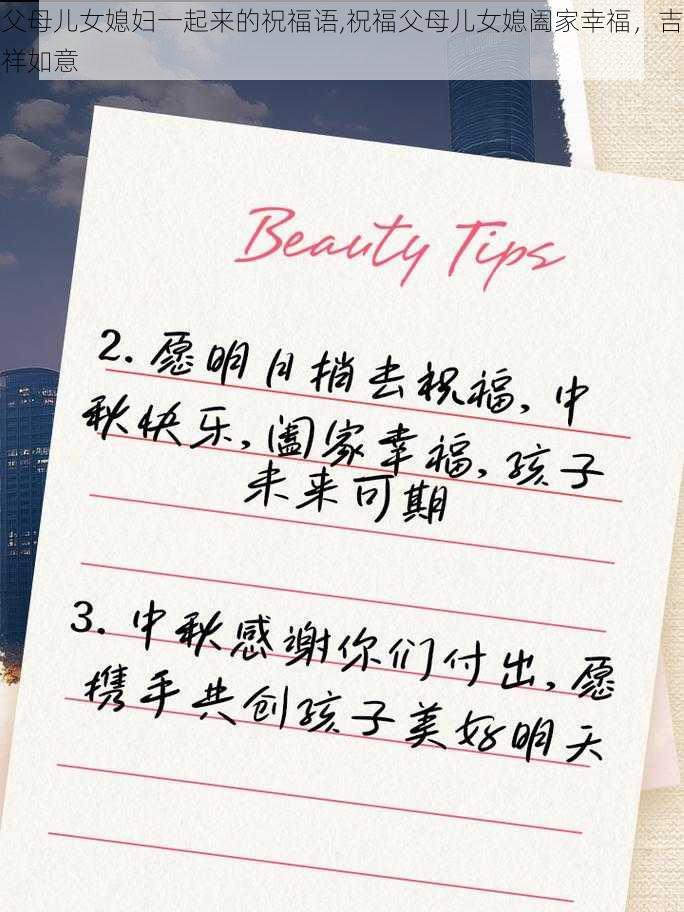 父母儿女媳妇一起来的祝福语,祝福父母儿女媳阖家幸福，吉
祥如意
Beauty Tips
2. 愿明月捎去祝福, 中
秋快乐, 阖家幸福, 孩子
未来可期
3. 中秋感谢你们付出, 愿
携手共创孩子美好明天